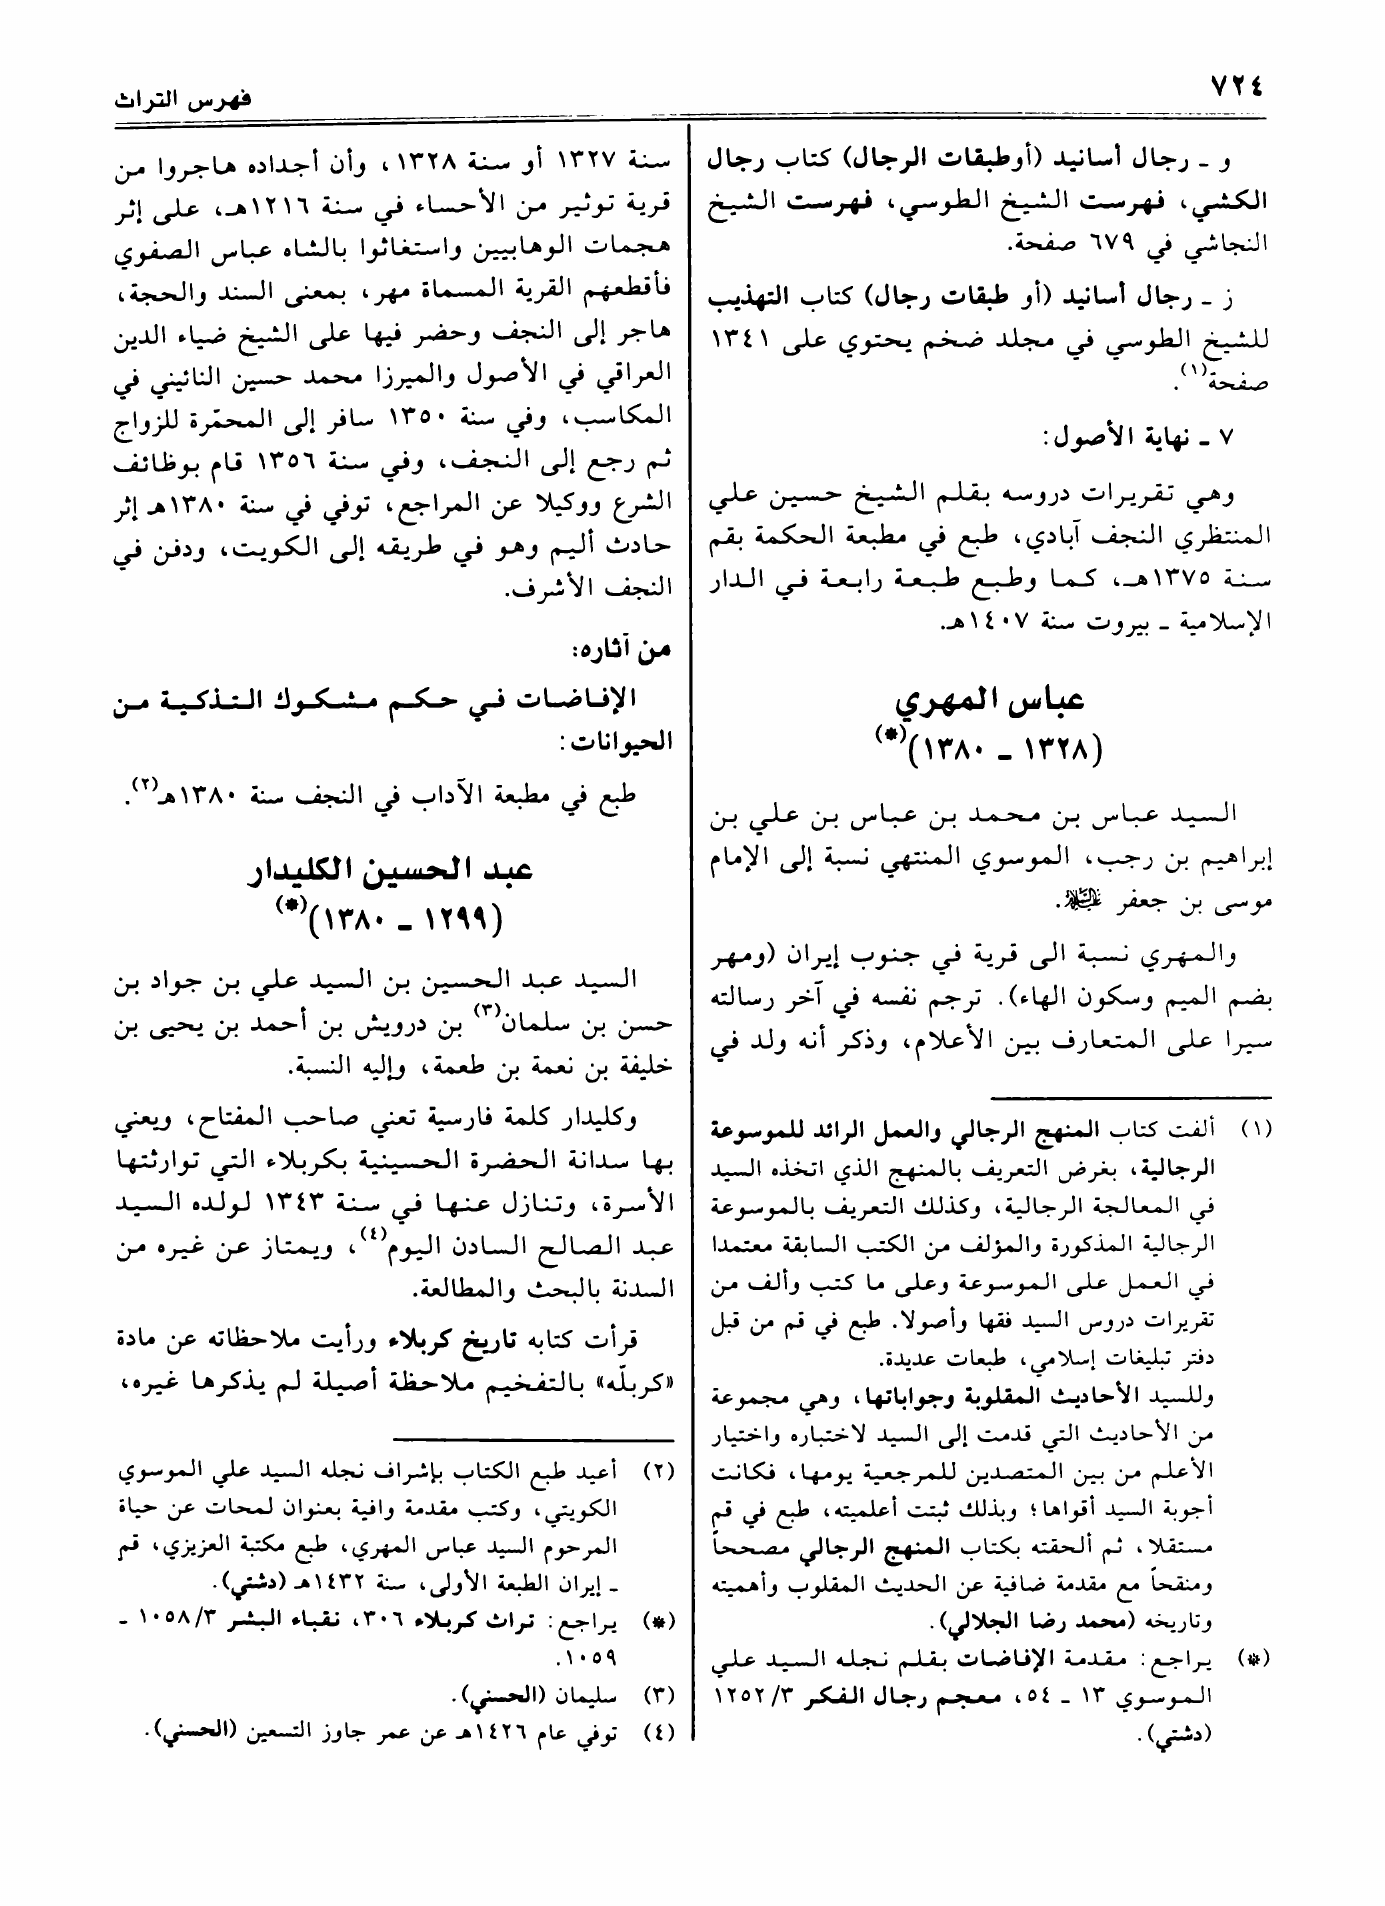 ٧٢٤
فهرس التراث
و ـ رجال أسانيد (أوطبقات الرجال) كتاب رجال
الكشي، فهرست الشيخ الطوسي، فهرست الشيخ
النجاشي في ٦٧٩ صفحة.
ز ـ رجال أسانيد (أو طبقات رجال) كتاب التهذيب
للشيخ الطوسي في مجلد ضخم يحتوي على ١٣٤١
صفحة(١).
٧ ـ نهاية الأصول:
وهي تقريرات دروسه بقلم الشيخ حسين علي
المنتظري النجف آبادي، طبع في مطبعة الحكمة بقم
سنة ١٣٧٥هـ، كما وطبع طبعة رابعة في الدار
الإسلامية ـ بيروت سنة ١٤٠٧هـ.
عباس المهري
(١٣٢٨ ـ ١٣٨٠)(*)
السيد عباس بن محمد بن عباس بن علي بن
إبراهيم بن رجب، الموسوي المنتهي نسبة إلى الإمام
موسى بن جعفر عليه السلام.
والمهري نسبة الى قرية في جنوب إيران (ومهر
بضم الميم وسكون الهاء). ترجم نفسه في آخر رسالته
سيرا على المتعارف بين الأعلام، وذكر أنه ولد في
(١) ألفت كتاب المنهج الرجالي والعمل الرائد للموسوعة
الرجالية، بغرض التعريف بالمنهج الذي اتخذه السيد
في المعالجة الرجالية، وكذلك التعريف بالموسوعة
الرجالية المذكورة والمؤلف من الكتب السابقة معتمدا
في العمل على الموسوعة وعلى ما كتب وألف من
تقريرات دروس السيد فقها وأصولا. طبع في قم من قبل
دفتر تبليغات إسلامي، طبعات عديدة.
وللسيد الأحاديث المقلوبة وجواباتها، وهي مجموعة
من الأحاديث التي قدمت إلى السيد لاختباره واختيار
الأعلم من بين المتصدين للمرجعية يومها، فكانت
أجوبة السيد أقواها؛ وبذلك ثبتت أعلميته، طبع في قم
مستقلا، ثم ألحقته بكتاب المنهج الرجالي مصححاً
ومنقحاً مع مقدمة ضافية عن الحديث المقلوب وأهميته
وتاريخه (محمد رضا الجلالي).
(*) يراجع: مقدمة الإفاضات بقلم نجله السيد علي
الموسوي ١٣ ـ ٥٤، معجم رجال الفكر ٣/ ١٢٥٢
(دشتي).
سنة ١٣٢٧ أو سنة ١٣٢٨، وأن أجداده هاجروا من
قرية توثير من الأحساء في سنة ١٢١٦هـ، على إثر
هجمات الوهابيين واستغاثوا بالشاه عباس الصفوي
فأقطعهم القرية المسماة مهر، بمعنى السند والحجة،
هاجر إلى النجف وحضر فيها على الشيخ ضياء الدين
العراقي في الأصول والميرزا محمد حسين النائيني في
المكاسب، وفي سنة ١٣٥٠ سافر إلى المحمّرة للزواج
ثم رجع إلى النجف، وفي سنة ١٣٥٦ قام بوظائف
الشرع ووكيلا عن المراجع، توفي في سنة ١٣٨٠هـ إثر
حادث أليم وهو في طريقه إلى الكويت، ودفن في
النجف الأشرف.
من آثاره:
الإفاضات في حكم مشكوك التذكية من
الحيوانات:
طبع في مطبعة الآداب في النجف سنة ١٣٨٠هـ(٢).
عبد الحسين الكليدار
(١٢٩٩ ـ ١٣٨٠)(*)
السيد عبد الحسين بن السيد علي بن جواد بن
حسن بن سلمان(٣) بن درويش بن أحمد بن يحيى بن
خليفة بن نعمة بن طعمة، وإليه النسبة.
وكليدار كلمة فارسية تعني صاحب المفتاح، ويعني
بها سدانة الحضرة الحسينية بكربلاء التي توارثتها
الأسرة، وتنازل عنها في سنة ١٣٤٣ لولده السيد
عبد الصالح السادن اليوم(٤)، ويمتاز عن غيره من
السدنة بالبحث والمطالعة.
قرأت كتابه تاريخ كربلاء ورأيت ملاحظاته عن مادة
«كربلّه» بالتفخيم ملاحظة أصيلة لم يذكرها غيره،
(٢) أعيد طبع الكتاب بإشراف نجله السيد علي الموسوي
الكويتي، وكتب مقدمة وافية بعنوان لمحات عن حياة
المرحوم السيد عباس المهري، طبع مكتبة العزيزي، قم
ـ إيران الطبعة الأولى، سنة ١٤٣٢هـ (دشتي).
(*) يراجع: تراث كربلاء ٣٠٦، نقباء البشر ٣/ ١٠٥٨ ـ
١٠٥٩.
(٣) سليمان (الحسني).
(٤) توفي عام ١٤٢٦هـ عن عمر جاوز التسعين (الحسني).